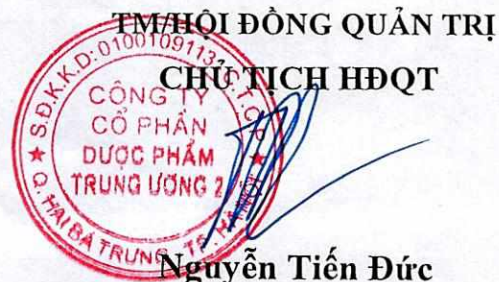 TM/HỘI ĐỒNG QUẢN TRỊ
CHỦ TỊCH HĐQT
S.Đ.K.K.D: 0100109113-C.T.C.P
CÔNG TY
CỔ PHẦN
DƯỢC PHẨM
TRUNG ƯƠNG 2
Q. HAI BÀ TRƯNG - TP. HÀ NỘI
Nguyễn Tiến Đức